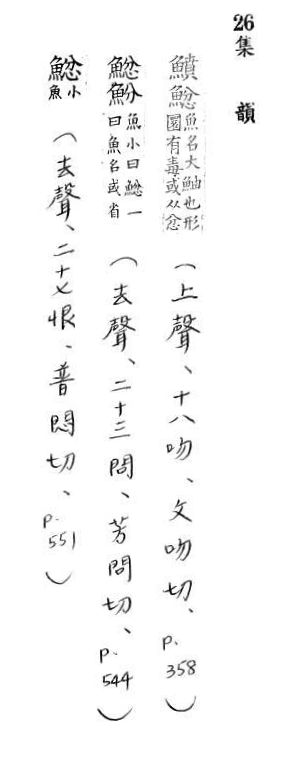 26集　韻
鱝鯰魚名大鮋也形圓有毒或从忿（上聲、十八吻、文吻切、p.358）
鯰魵魚小曰鯰一曰魚名或省（去聲、二十三問、芳問切、p.544）
鯰小魚（去聲、二十七恨、普悶切、p.551）